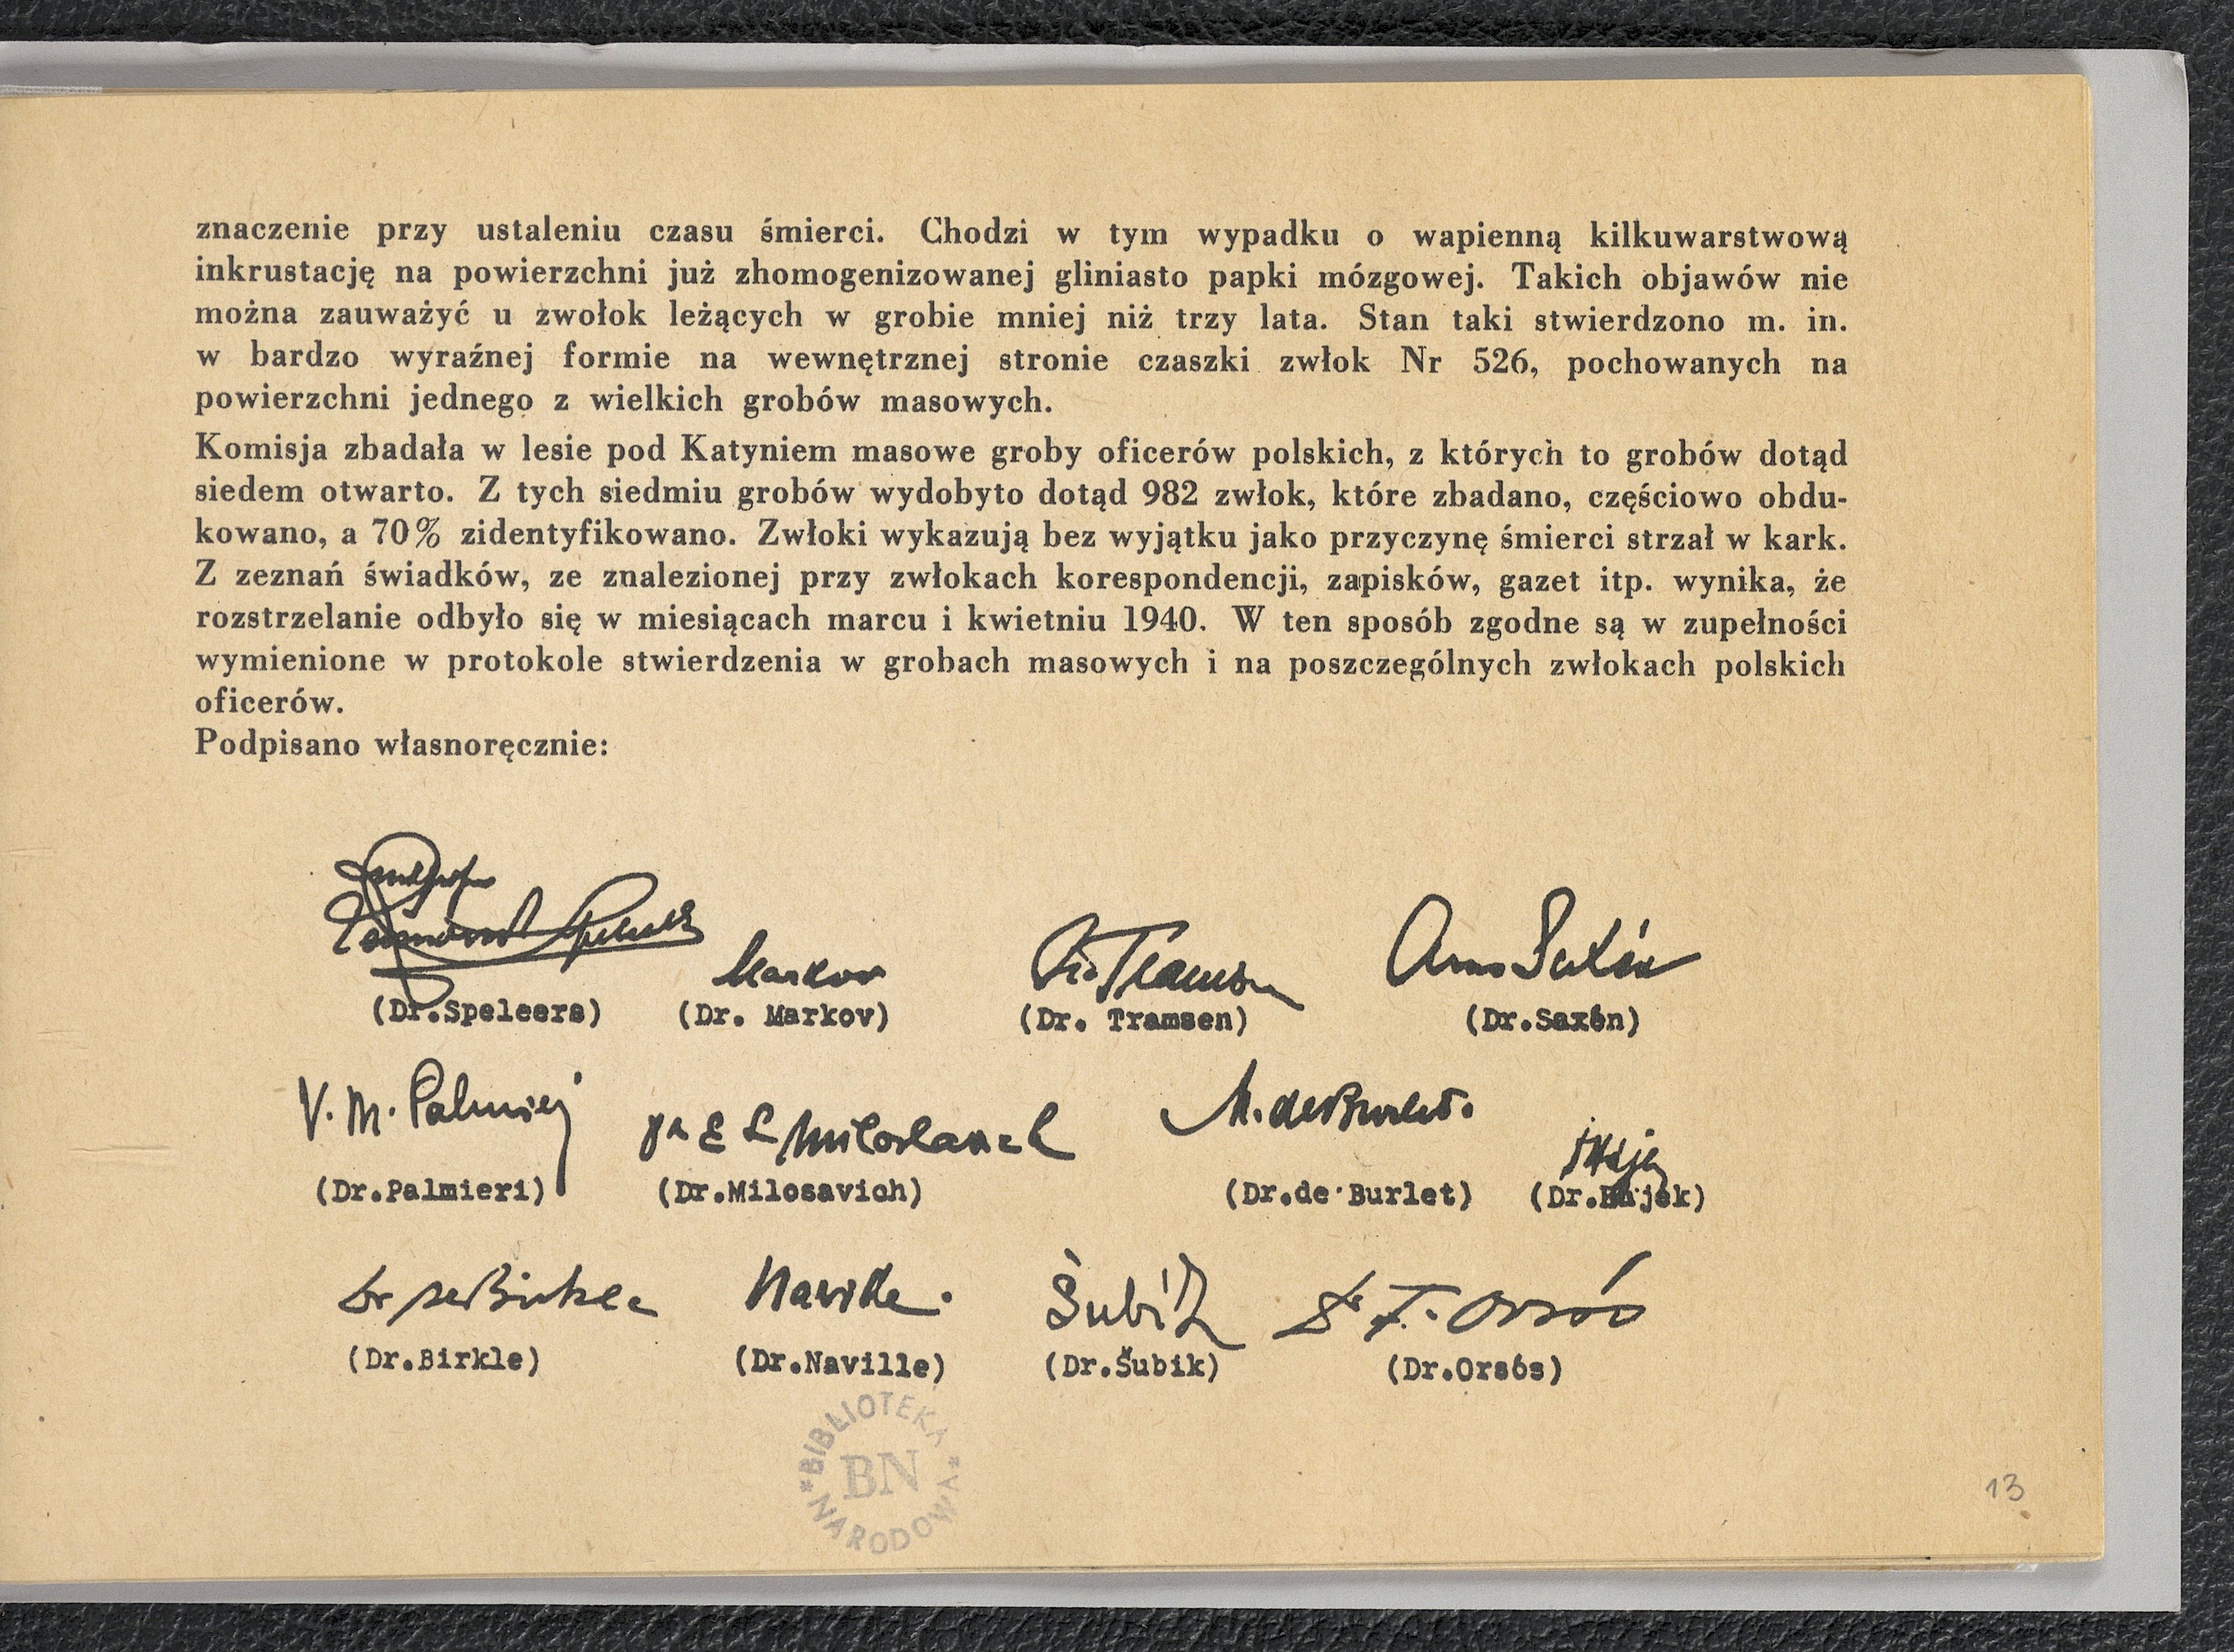 znaczenie przy ustaleniu czasu śmierci. Chodzi w tym wypadku o wapienną kilkuwarstwową
inkrustację na powierzchni już zhomogenizowanej gliniasto papki mózgowej. Takich objawów nie
można zauważyć u zwołok leżących w grobie mniej niż trzy lata. Stan taki stwierdzono m. in.
w bardzo wyraźnej formie na wewnętrznej stronie czaszki zwłok Nr 526, pochowanych na
powierzchni jednego z wielkich grobów masowych.
Komisja zbadała w lesie pod Katyniem masowe groby oficerów polskich, z których to grobów dotąd
siedem otwarto. Z tych siedmiu grobów wydobyto dotąd 982 zwłok, które zbadano, częściowo obdu-
kowano, a 70% zidentyfikowano. Zwłoki wykazują bez wyjątku jako przyczynę śmierci strzał w kark.
Z zeznań świadków, ze znalezionej przy zwłokach korespondencji, zapisków, gazet itp. wynika, że
rozstrzelanie odbyło się w miesiącach marcu i kwietniu 1940. W ten sposób zgodne są w zupełności
wymienione w protokole stwierdzenia w grobach masowych i na poszczególnych zwłokach polskich
oficerów.
Podpisano własnoręcznie:
Markov
(Dr.Speleers) (Dr. Markov) (Dr. Tramsen) (Dr.Saxén)
V. M. Palmieri M. de Burlet.
(Dr.Palmieri) (Dr.Milosavich) (Dr.de Burlet) (Dr.Hájek)
Naville. Šubík Dr F. Orsós
(Dr.Birkle) (Dr.Naville) (Dr.Šubik) (Dr.Orsós)
BIBLIOTEKA
BN
NARODOWA
13